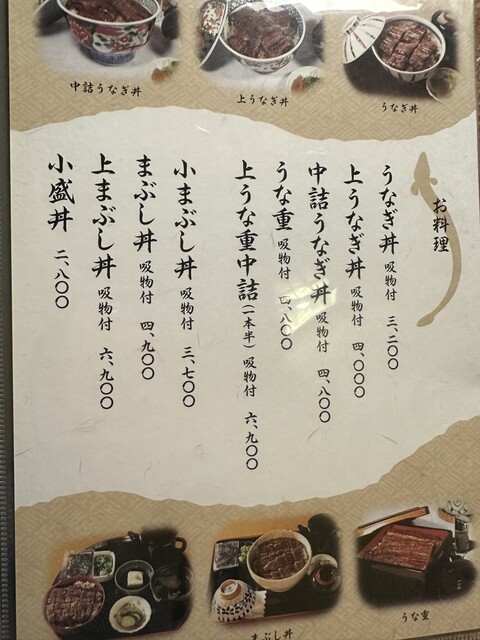 中詰うなぎ丼
上うなぎ丼
うなぎ丼
お料理
うなぎ丼 吸物付 三、二〇〇
上うなぎ丼 吸物付 四、〇〇〇
中詰うなぎ丼 吸物付 四、八〇〇
うな重 吸物付 四、八〇〇
上うな重中詰(一本半) 吸物付 六、九〇〇
小まぶし丼 吸物付 三、七〇〇
まぶし丼 吸物付 四、九〇〇
上まぶし丼 吸物付 六、九〇〇
小盛丼 二、八〇〇
まぶし丼
うな重